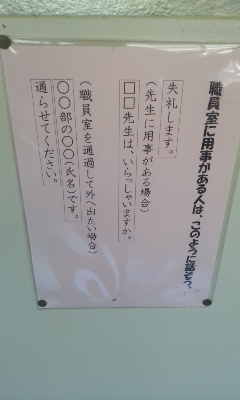 職員室に用事がある人は、このように話そう。
失礼します。
(先生に用事がある場合)
□□先生は、いらっしゃいますか。
(職員室を通過して外へ出たい場合)
〇〇部の〇〇(氏名)です。
通らせてください。